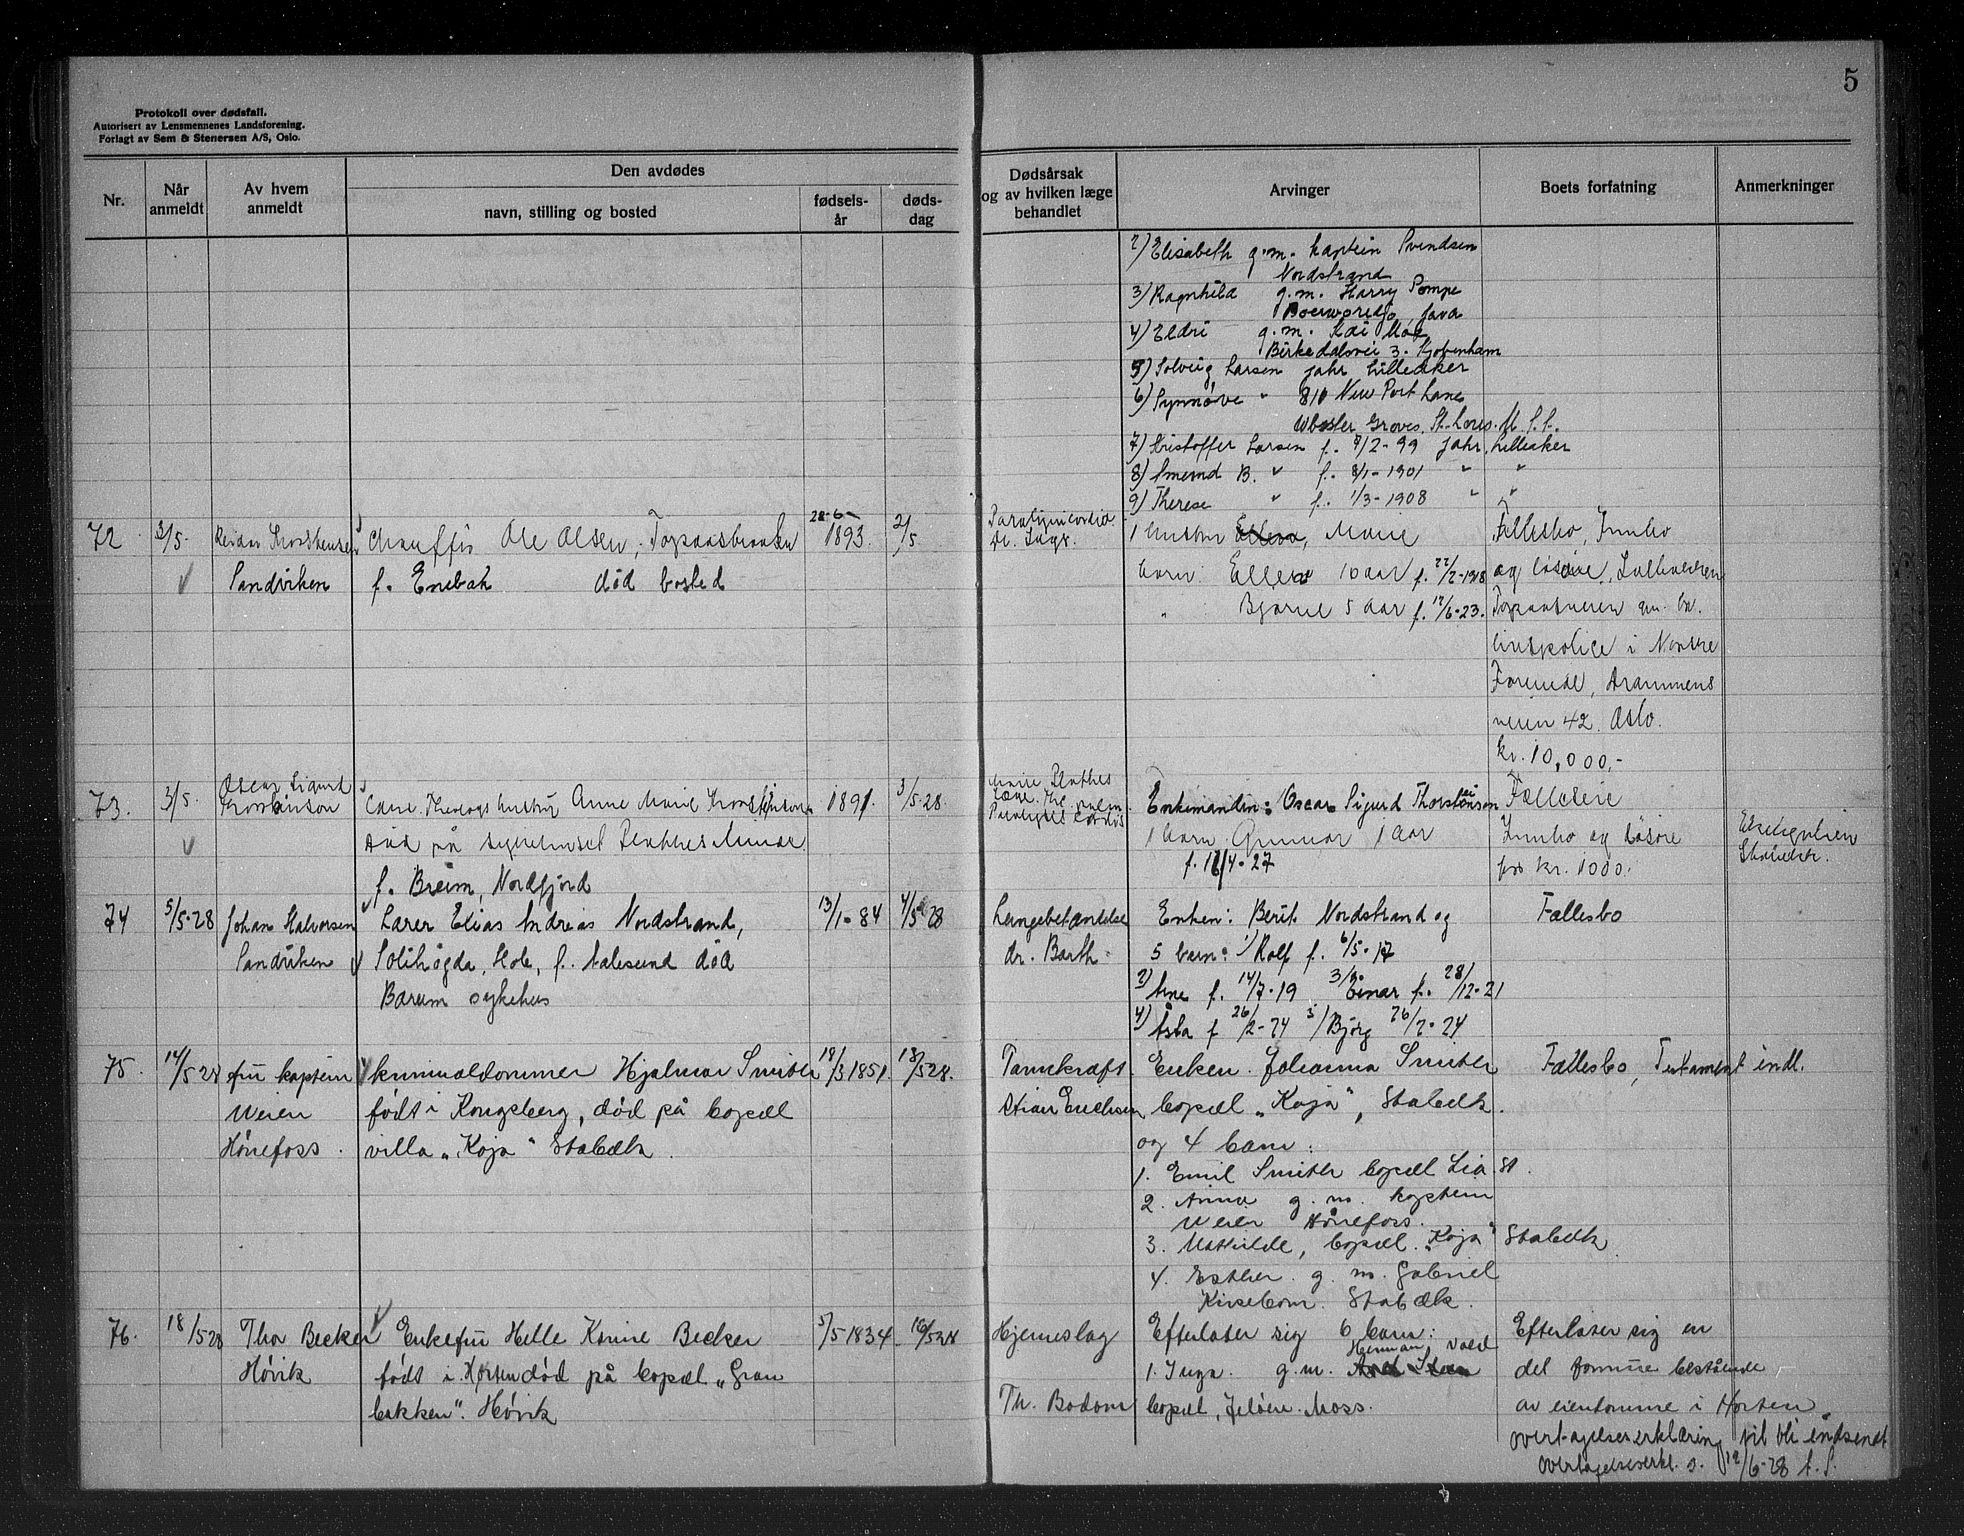 5
Protokoll over dødsfall.
Autorisert av Lensmennenes Landsforening.
Forlagt av Sem & Stenersen A/S, Oslo.
Nr.
Når anmeldt
Av hvem anmeldt
Den avdødes
navn, stilling og bosted
fødsels-år
døds-dag
Dødsårsak og av hvilken læge behandlet
Arvinger
Boets forfatning
Anmerkninger
2) Elisabeth g.m. kaptein Svendsen
Nordstrand
3) Ragnhild g.m. Harry Pompe
Java
4) Eldri g.m. Kai Moe
Birkedalsvei 3. Kjøbenham
5) Solveig Larsen Jahr Lilleaker
6) Synnøve " 810 New Port Lane
Groves. St. Louis.
7) Kristoffer Larsen f. 9/2-99 Jahr, Lilleaker
8) B. " f. 8/1-1901 " "
9) Therese " f. 1/3-1908 " "
72 3/5.
Sandviken
Chauffør Ole Olsen,
f. Enebak død bosted
28-6-
1893. 2/5
1 hustru Marie
barn: Ellen 10 aar f. 22/2-1918
" Bjarne 5 aar f. 12/6-23.
Fællesbo, Innbo
og løsøre,
i Norske
Forenede, Drammens
veien 42. Oslo.
kr. 10,000,-
73. 3/5.
Oscar Sigurd
Anne Marie
død på
f. Breim, Nordfjord
1891. 3/5-28.
Enkemanden: Oscar Sigurd Thorsteinsen
1 barn Gunnar 1 aar
f. 16/4-27
Fælleseie
Innbo og løsøre
for kr. 1000.
74 5/5-28 Johan Halvorsen
Sandviken
Lærer Elias Andreas Nordstrand,
Sollihøgda, Hole, f. Aalesund død
Bærum sykehus
13/1-84 4/5-28
Lungebetændelse
dr. Barth.
Enken: Berit Nordstrand og
5 barn: 1) Rolf f. 6/5-17
2) Arne f. 14/7-19 3) Einar f. 28/12-21
4) Åsta f 26/2-24 5) Bjørg 26/2-24
Fællesbo
75. 14/5 28 fru kaptein
Weien
Hønefoss.
kriminaldommer Hjalmar Smith
født i Kongsberg, død på bopæl
villa „Koja" Stabæk.
19/3 1851.
Tarmkræft
Enken. Johanna Smith
bopæl „Koja", Stabæk.
og 4 barn:
1. Emil Smith bopæl
2. Anna g.m. kaptein
Weien Hønefoss.
3. Mathilde, bopæl. „Koja" Stabæk
4. Esther. g.m. Gabriel
Kirsebom. Stabæk.
Fællesbo, Testament indl.
76. 18/5 28 Thor Becker
Høvik
Enkefru Helle Becker
født i Horten død på bopæl „Gran
bakken". Høvik
5/5 1834. 16/5 28
Hjerneslag
Th. Bodom
Efterlater sig 6 barn:
Herman
1. Inga. g.m.
bopæl, Jeløen. Moss.
Efterlater sig en
del formue bestående
av eiendomme i Horten,
overtagelseserklæring vil bli indsendt
overtagelseserkl. s. 19/6-28 L.S.